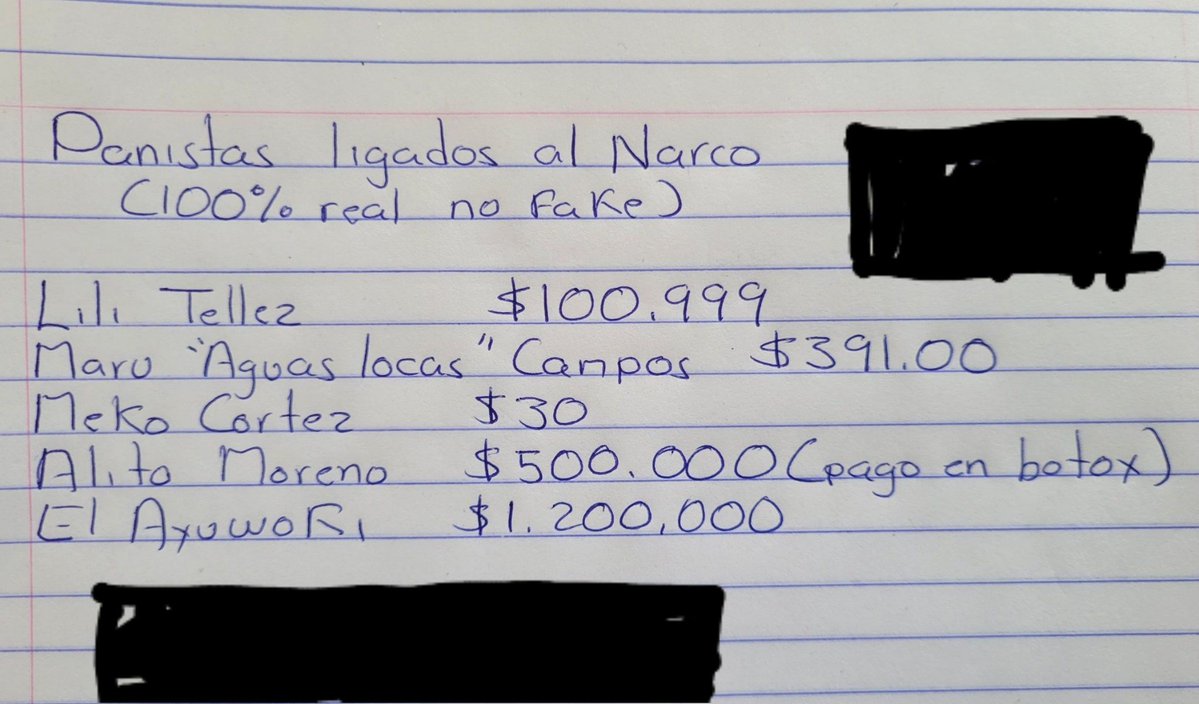 Panistas ligados al Narco
(100% real no fake)
Lili Tellez $100.999
Maru "Aguas locas" Campos $391.00
Meko Cortez $30
Alito Moreno $500.000 (pago en botox)
El Ayuwoki $1.200,000